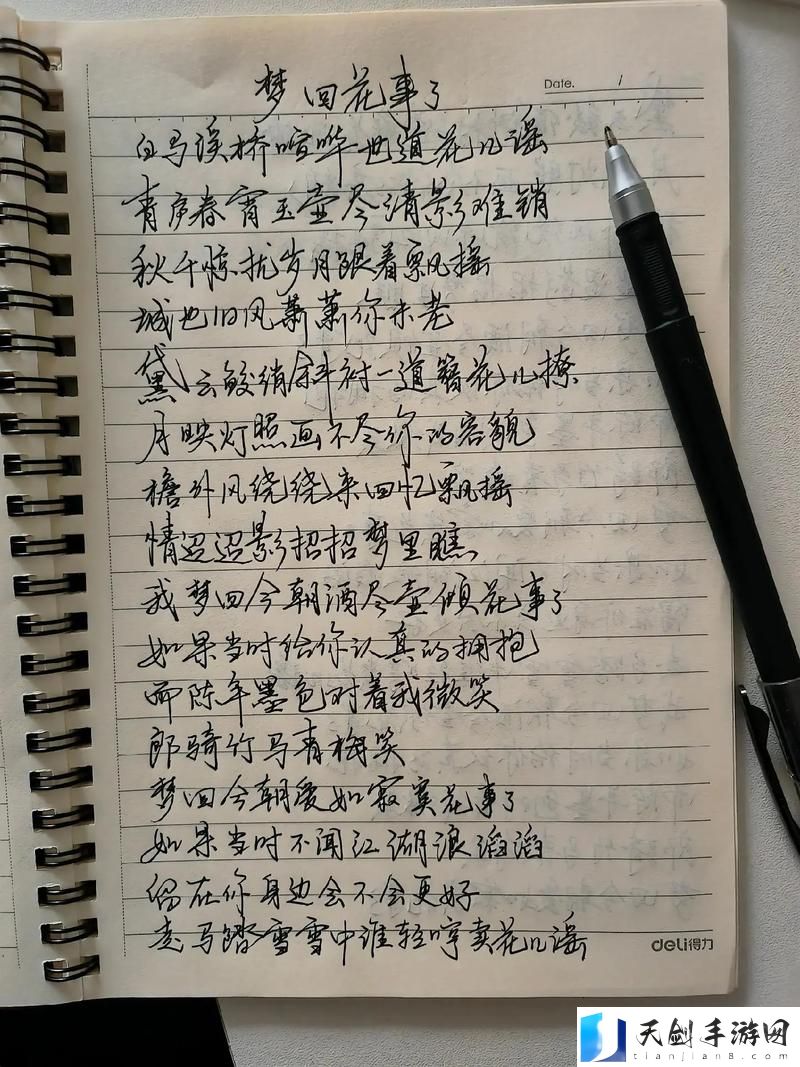 梦回花事了
Date. /
白马溪桥喧哗一地道花儿谣
青庐春宵玉壶尽清影难销
秋千惊扰岁月跟着飘摇
城也旧风萧萧你未老
黛云鲛绡斜衬一道簪花儿撩
月映灯照画不尽你的容貌
檐外风绕绕来回忆飘摇
情迢迢影招招梦里瞧
我梦回今朝酒尽壶倾花事了
如果当时给你认真的拥抱
而陈年墨色对着我微笑
郎骑竹马青梅笑
梦回今朝爱如寂寞花事了
如果当时不闻江湖浪滔滔
留在你身边会不会更好
走马踏雪雪中谁轻哼卖花儿谣
deli得力
天剑手游网
tianjian8.com